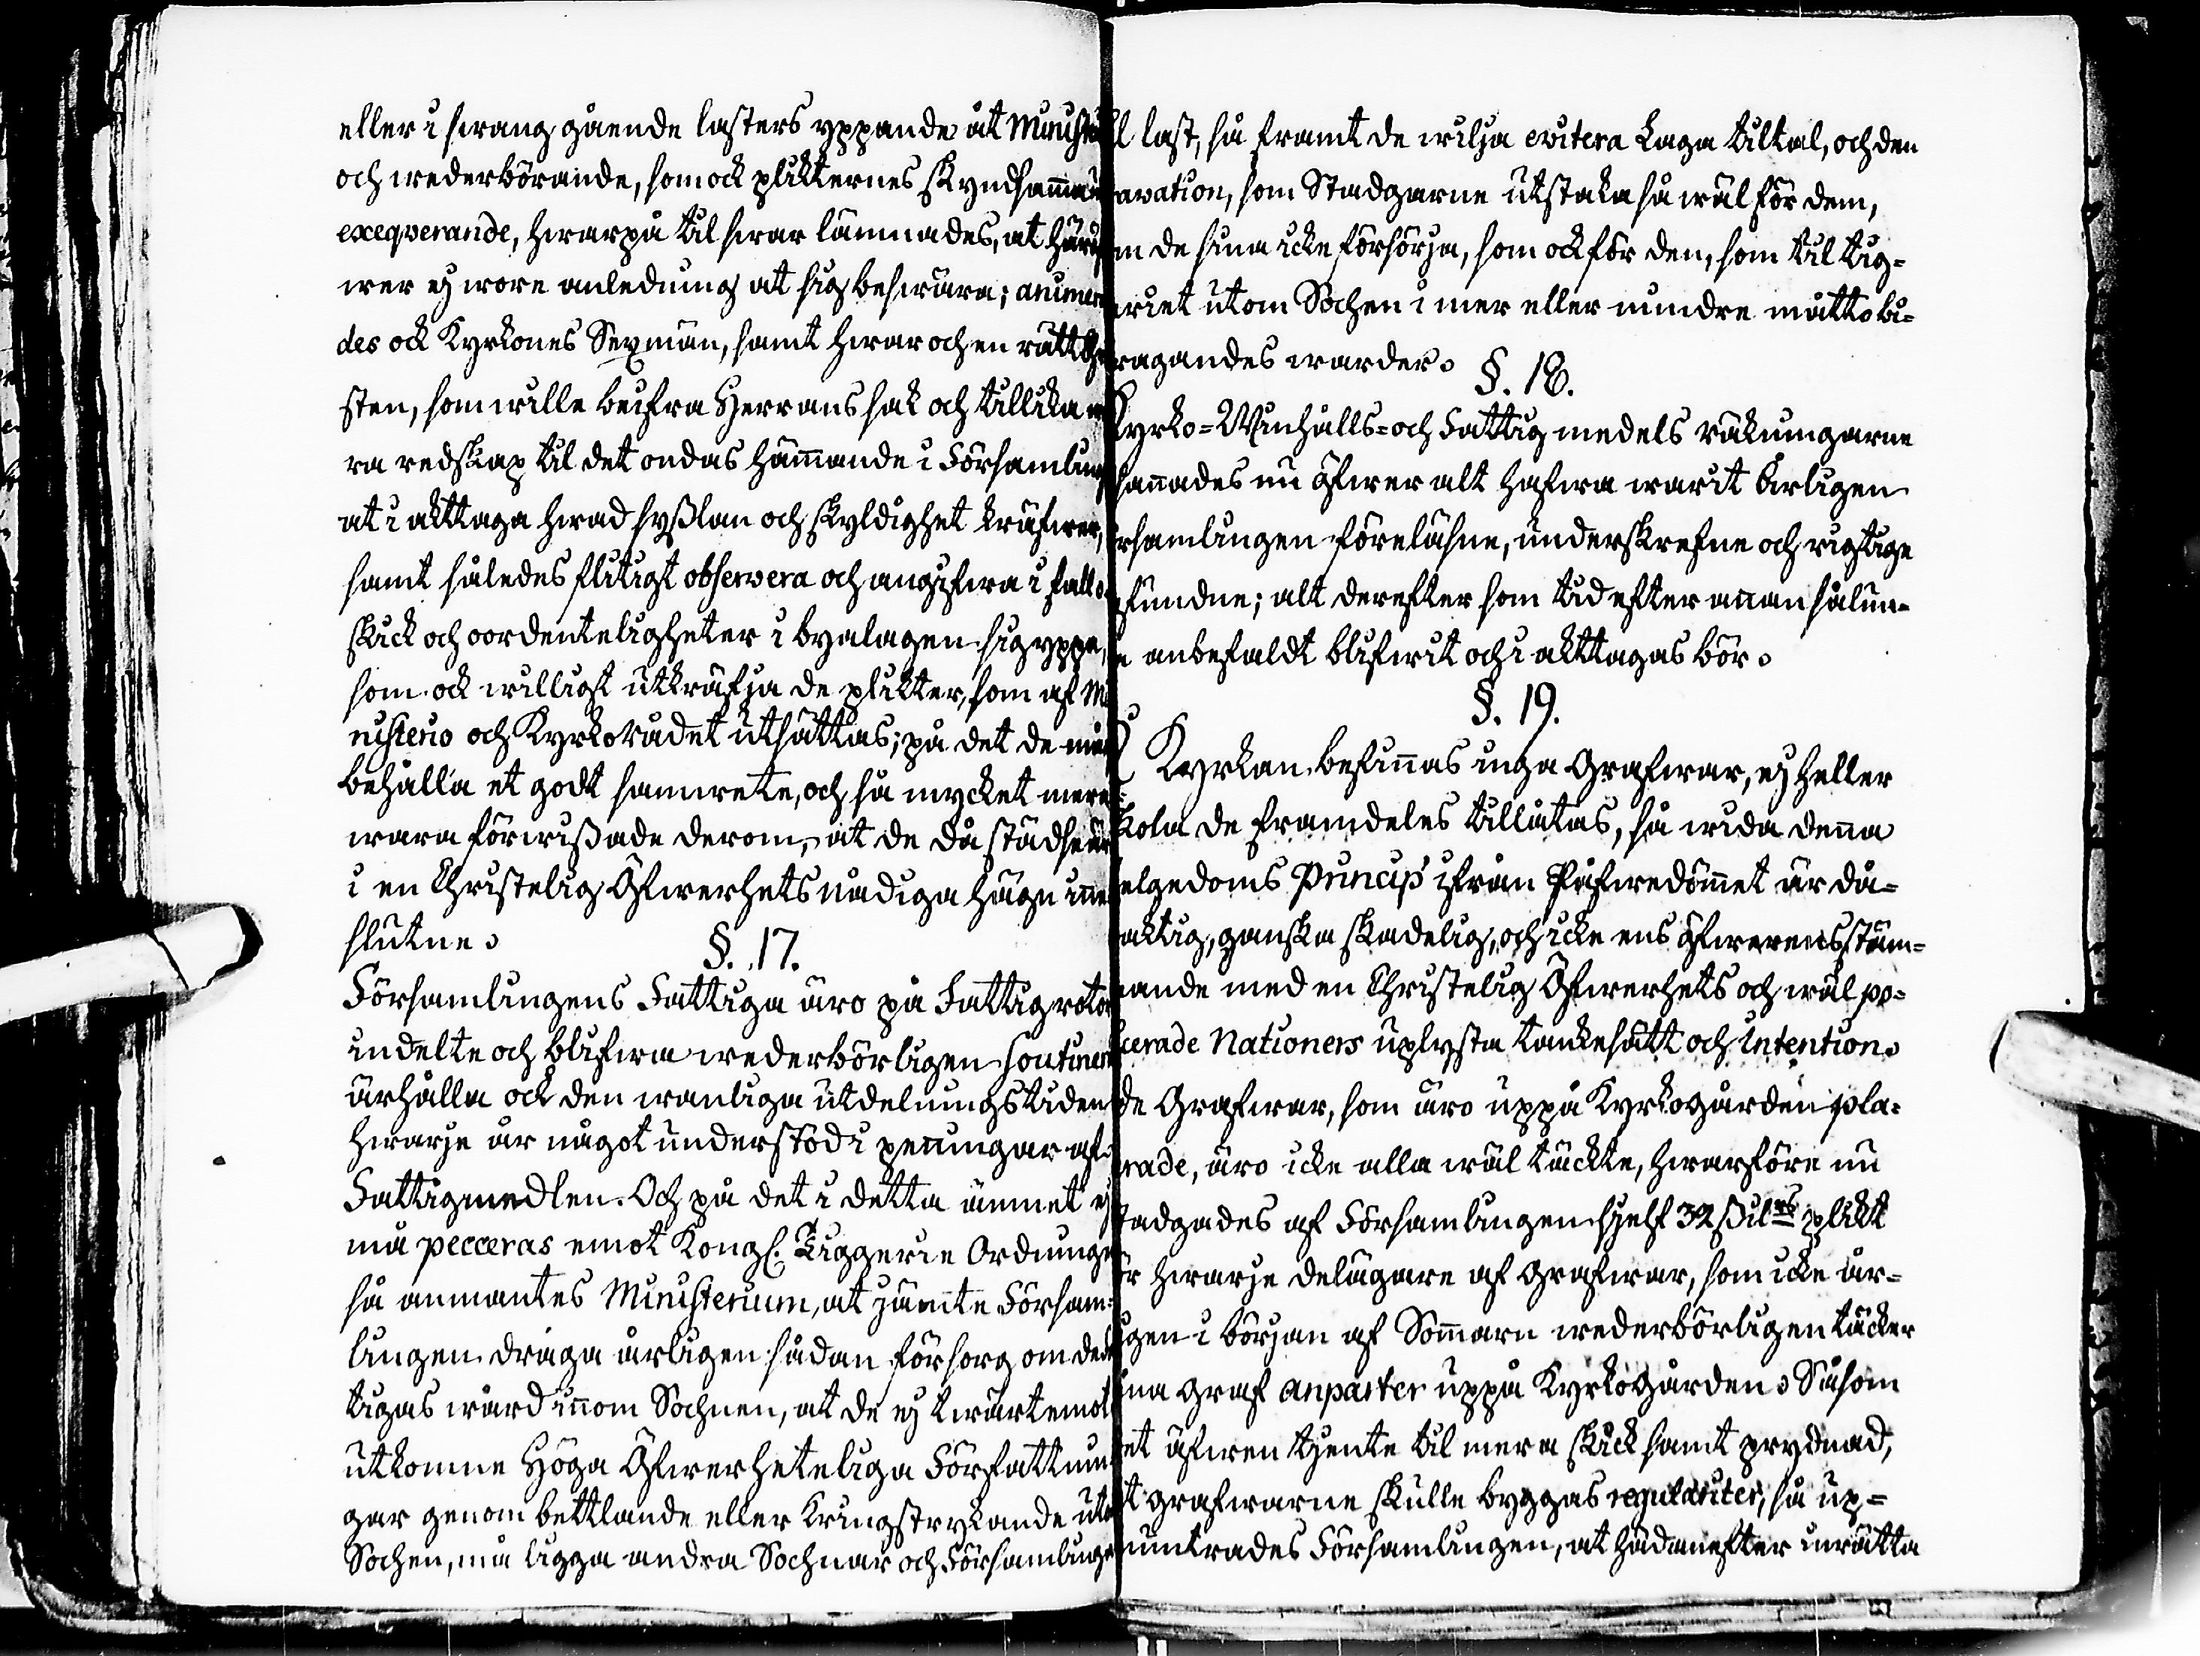 eller i swang gående lasters yppande åt Ministe
och wederbörande, som ock plikternes skyndsamma
exeqverande, hwarpå til swar lämnades, at härut
wer ej wore anledning at sig beswära; animera
des ock Kyrkones Sexmän, samt hwar och en rätt Chri
sten, som wille beifra Herrans sak och tillika wa
ra redskap til det ondas hämmande i Församling
at i akttaga hwad sysslan och skyldighet kräfwer,
samt således flitigt observera och angifwa i fall o
skick och oordenteligheter i byalagen sig yppa,
som ock willigt utkräfja de plikter, som af Mi
nisterio och Kyrkorådet utsättas; på det de må
behålla et godt samwete, och så mycket mera
wara förwissade derom, at de då städse är
i en Christelig Öfwerhets nådiga hägn inne
slutne.
§. 17.
Församlingens Fattiga äro på Fattigrotar
indelte och blifwa wederbörligen soutiner
ärhålla ock den wanliga utdelningstiden
hwarje år något understöd i penningar af
Fattigmedlen. Och på det i detta ämnet ej
må pecceras emot Kongl. Tiggerie Ordninge
så anmantes Ministerium, at jämte Försam-
lingen draga årligen sådan försorg om de
tigas wård innom Sochnen, at de ej twärtemot
utkomne Höga Öfwerheteliga Författnin
gar genom bettlande eller kringstrykande uto
Sochen, må ligga andra Sochnar och Församlinga
l last, så framt de wilja evitera Laga tiltal, och den
avation, som Stadgarne utstaka så wäl för dem,
m de sina icke försörja, som ock för den, som til tig-
eriet utom Sochen i mer eller mindre mått bi-
ragandes warder.
§. 18.
Kyrko-Winhålls- och Fattigmedels räkningarne
sannades nu öfwer alt hafwa warit årligen
rsamlingen föreläsne, underskrefne och rigtige
fundne; alt derefter som tid efter annan sålun-
e anbefaldt blifwit och i akttagas bör.
§. 19.
I Kyrkan befinnas inga Grafwar, ej heller
skola de framdeles tillåtas, så wida denna
elgedoms Princip ifrån Påfwedömmet är då-
aktig, ganska skadelig, och icke ens öfwerensstäm-
ande med en Christelig Öfwerhets och wäl po-
cerade Nationers uplysta tankesätt och Intention.
de Grafwar, som äro uppå Kyrkogården pla-
rade, äro icke alla wäl täckte, hwarföre nu
stadgades af Församlingen sjelf 32 ßil:rs plikt
ör hwarje delägare af Grafwar, som icke år-
igen i början af Sommarn wederbörligen täcker
ina graf anparter uppå Kyrkogården. Såsom
et äfwen tjente til mera skick samt prydnad,
t grafwarne skulle byggas regulariter, så up-
muntrades Församlingen, at hädanefter inrätta